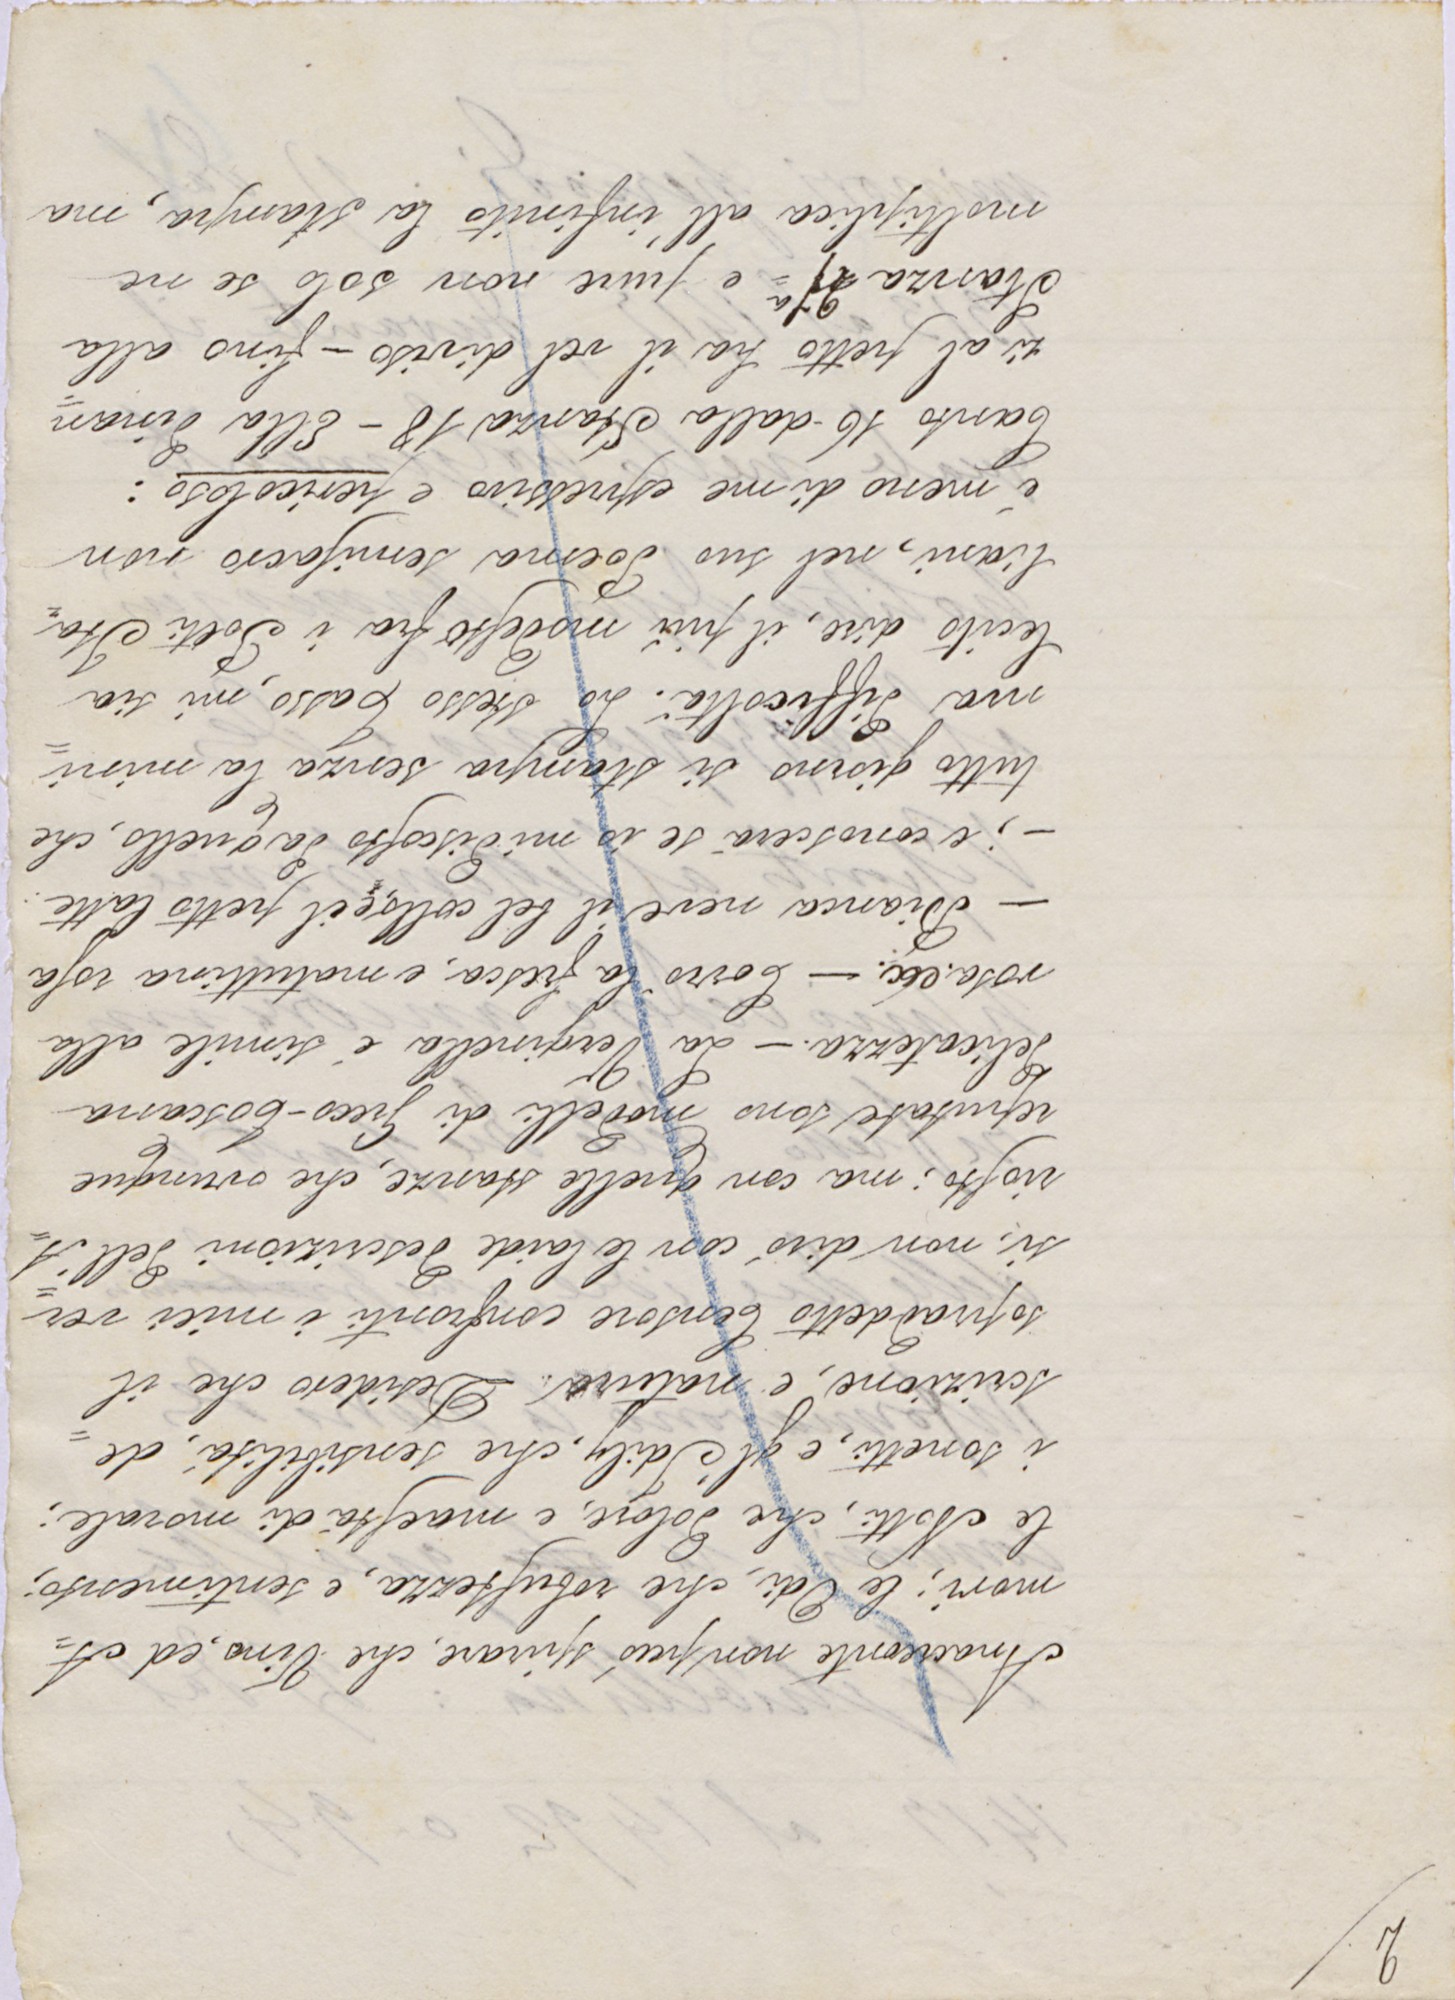 2
Anacreonte non può spirare, che Vino, ed A=
mori; le Odi, che robustezza, e sentimento;
le Notti, che dolore, e maestà di morale;
i sonetti, e gl'Idilj, che sensibilità, de=
scrizione, e natura. Desidero che il
sopraddetto Censore confronti i miei ver=
si, non dirò con le laide descrizioni dell'A=
riosto; ma con quelle stanze, che ovunque
reputate sono modelli di Greco-Toscana
delicatezza. — La Verginella è simile alla
rosa. ec. — Corrò la fresca, e matuttina rosa
— Bianca neve il bel collo, e il petto latte.
—; e conoscerà se io mi discosto da quello, che
tutto giorno si stampa senza la mini=
ma difficoltà. Lo stesso Tasso, mi sia
lecito dire, il più modesto fra i Poeti Ita=
liani, nel suo Poema semisacro non
è meno di me espressivo e pericoloso:
Canto 16 dalla Stanza 18 — Ella dinan=
zi al petto ha il vel diviso — fino alla
Stanza e pure non solo se ne
moltiplica all'infinito la stampa, ma